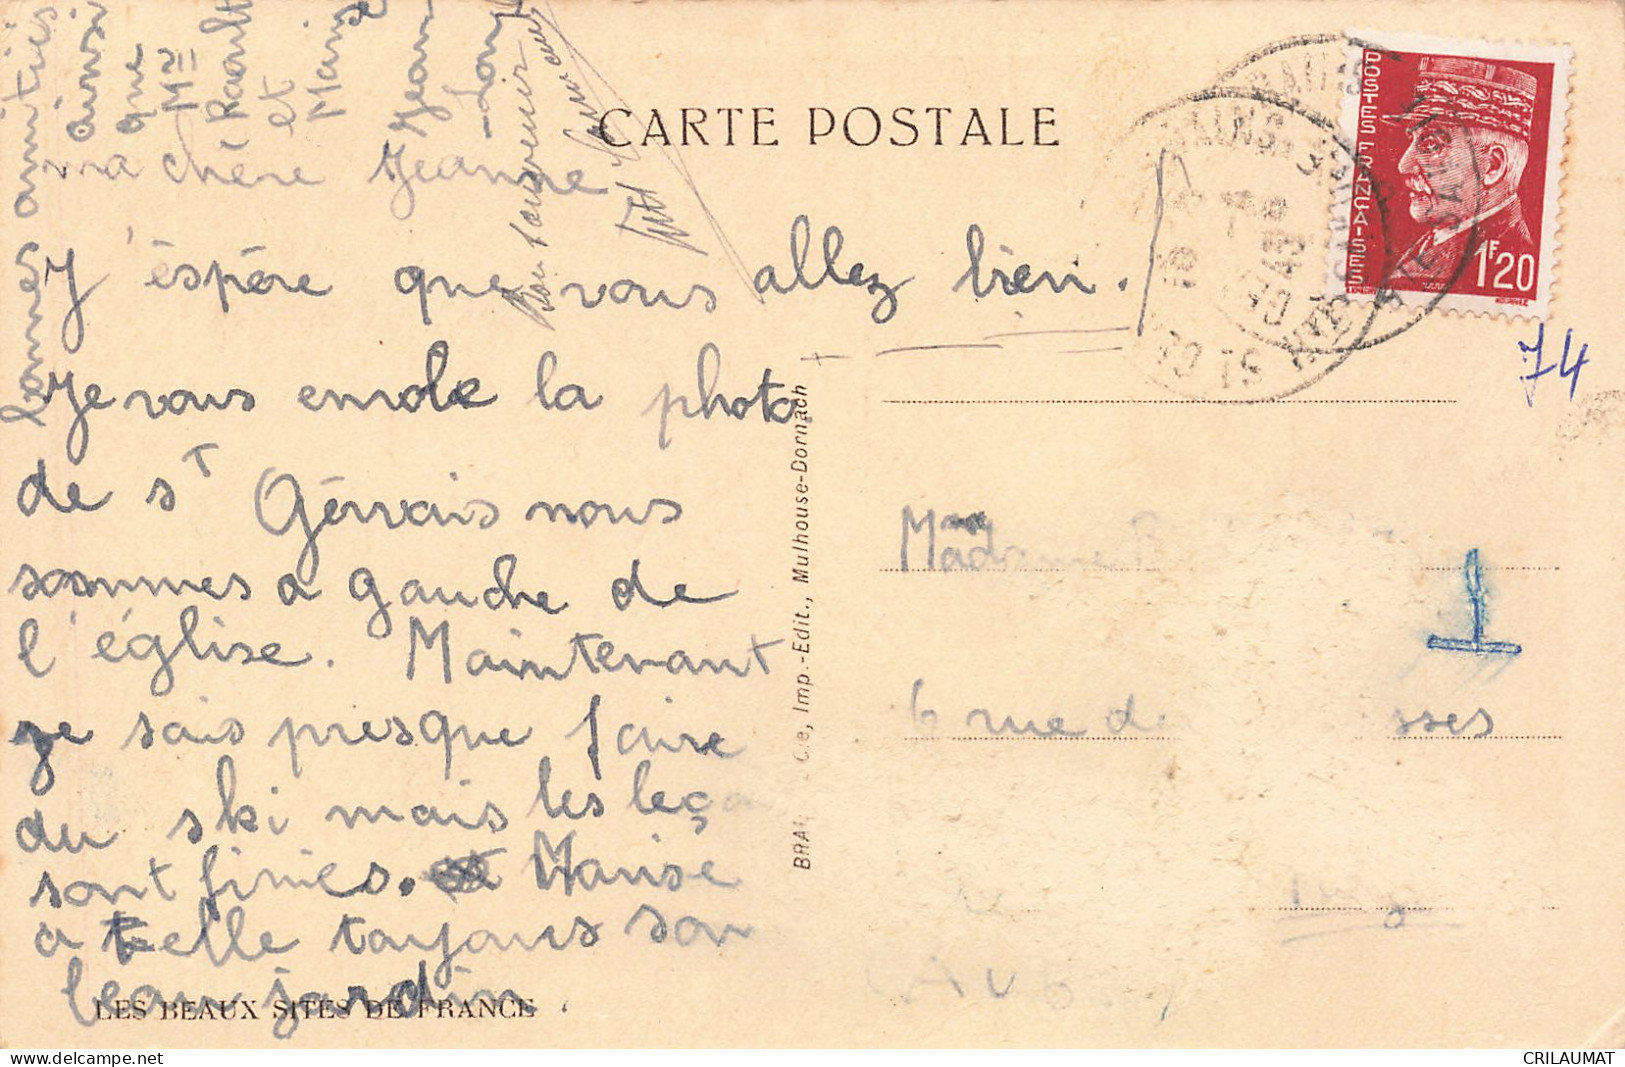 CARTE POSTALE
ma chère Jeanne
J'éspére que vous allez bien.
Je vous envoie la photo
de sT Gérvais nous
sommes a gauche de
l'église. Maintenant
je sais presque faire
du ski mais les leço
sont finies. Marise
a t elle toujours son
beau jardin
LES BEAUX SITES DE FRANCE
bonnes amitiés
ainsi
que
Mr
Raoult
et
Marise
Jean
-Lou
Bon souvenir
BRA Cie, Imp.-Edit., Mulhouse-Dornach
POSTES FRANÇAISES
1F20
74
Madame B
6 rue de sses
(Aub
CRILAUMAT